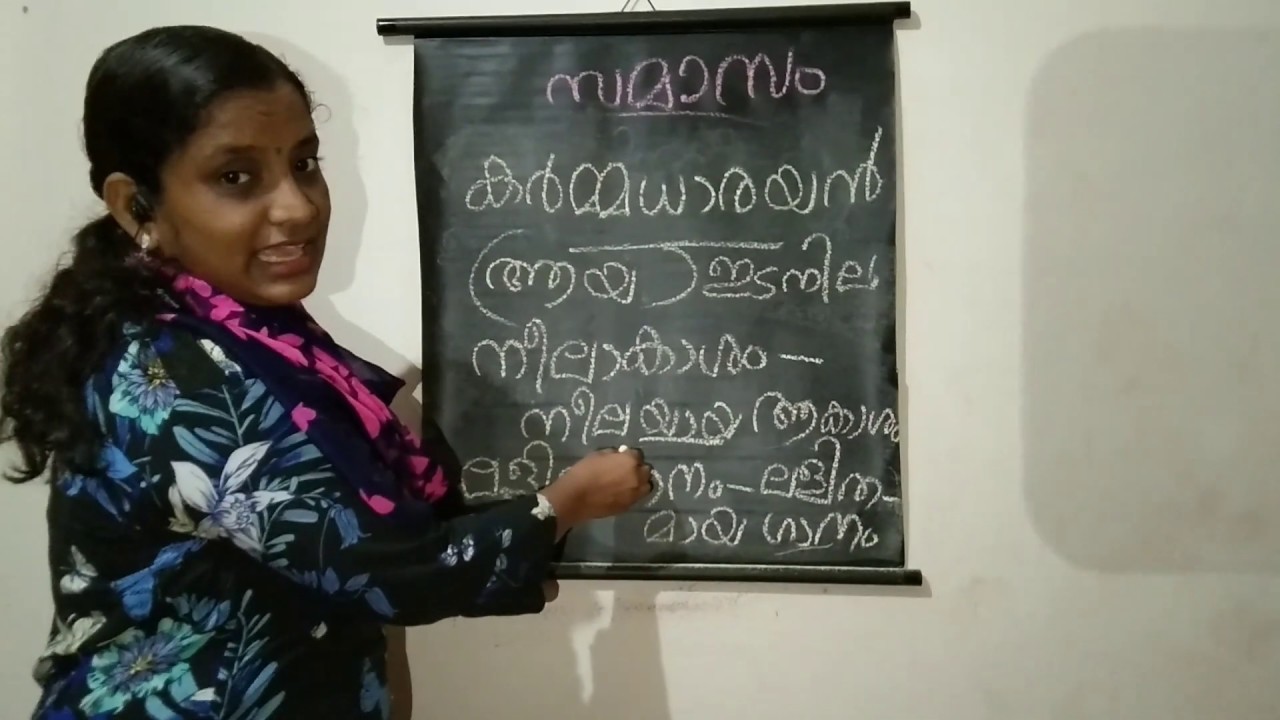 സമാസം
കർമ്മധാരയൻ
(ആയ) ഇടനില
നീലാകാശം –
നീലയായ ആകാശം
– ലളിത-
മായ ഗാനം